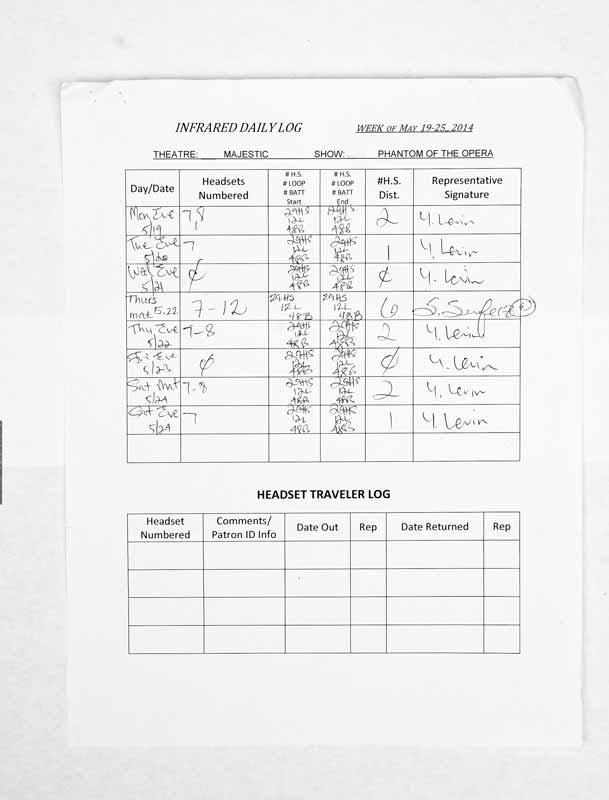 INFRARED DAILY LOG WEEK OF MAY 19-25, 2014
THEATRE: MAJESTIC SHOW: PHANTOM OF THE OPERA
Day/Date Headsets Numbered # H.S. # LOOP # BATT Start # H.S. # LOOP # BATT End #H.S. Dist. Representative Signature
Mon Eve 5/19 7 8 29HS 12L 48B 29HS 12L 48B 2 Y. Levin
Tue Eve 5/20 7 29HS 12L 48B 29HS 12L 48B 1 Y. Levin
Wed Eve 5/21 ¢ 29HS 12L 48B 29HS 12L 48B ¢ Y. Levin
Thurs mat 5.22 7-12 29HS 12L 48B 29HS 12L 48B 6 S.
Thu Eve 5/22 7-8 29HS 12L 48B 29HS 12L 48B 2 Y. Levin
Fri Eve 5/23 ¢ 29HS 12L 48B 29HS 12L 48B ¢ Y. Levin
Sat Mat 5/24 7-8 29HS 12L 48B 29HS 12L 48B 2 Y. Levin
Sat Eve 5/24 7 29HS 12L 48B 29HS 12L 48B 1 Y. Levin
HEADSET TRAVELER LOG
Headset Numbered Comments/ Patron ID Info Date Out Rep Date Returned Rep